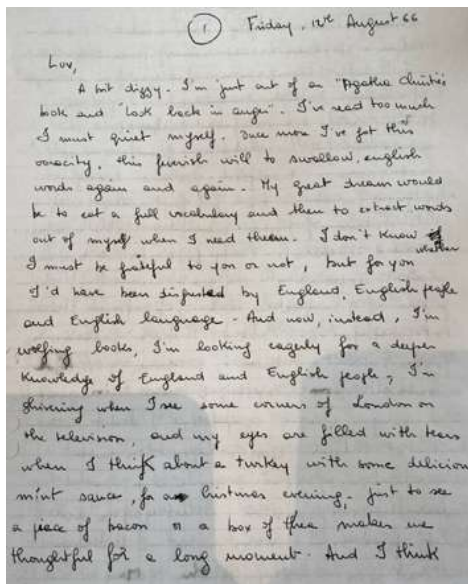 1 Friday, 12th August 66
Luv,
A bit dizzy. I'm just out of an "Agatha Christie's
book and "Look back in anger". I've read too much
I must quiet myself. Once more I've got this
voracity, this feverish will to swallow, english
words again and again. My great dream would
be to eat a full vocabulary and then to extract words
out of myself when I need them. I don't know
whether
I must be grateful to you or not, but for you
I'd have been disgusted by England, English people
and English language - And now, instead, I'm
wolfing books, I'm looking eagerly for a deeper
knowledge of England and English people, I'm
shivering when I see some corners of London on
the television, and my eyes are filled with tears
when I think about a turkey with some delicious
mint sauce, for a christmas evening. Just to see
a piece of bacon or a box of thea makes me
thoughtful for a long moment. And I think